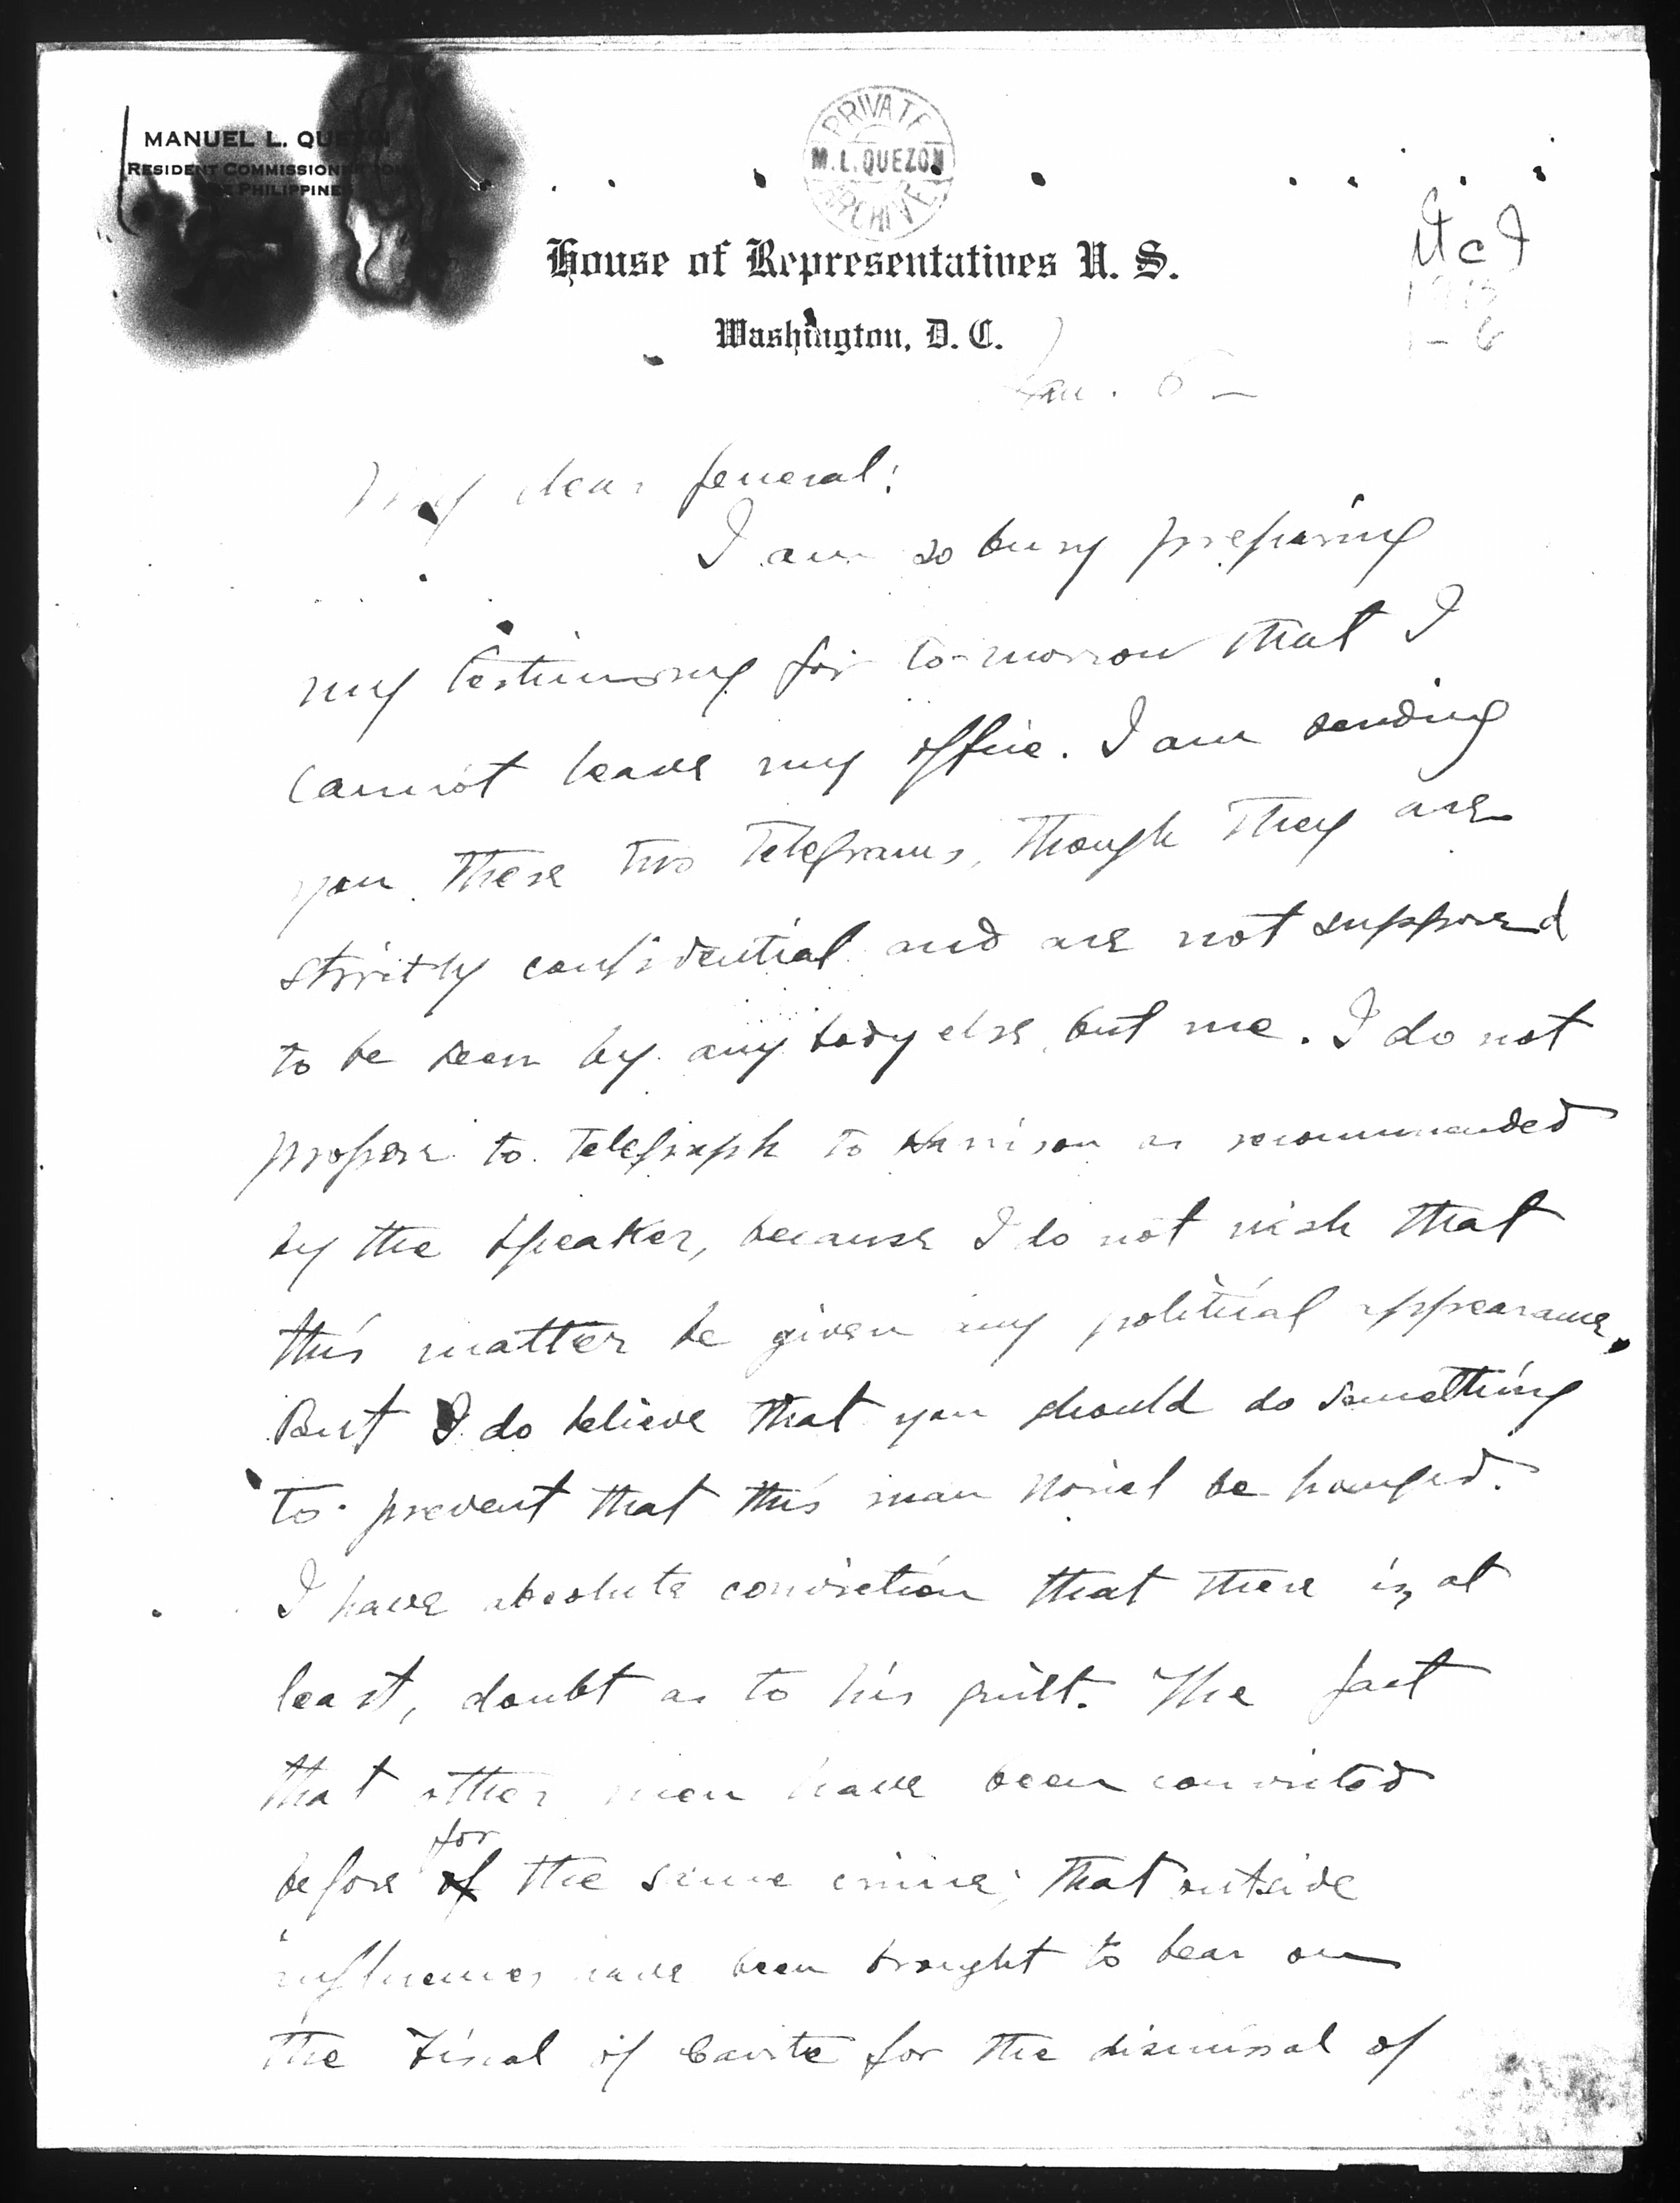 MANUEL L. QUEZON
RESIDENT COMMISSIONER
PHILIPPINE
PRIVATE
M. L. QUEZON
ARCHIVE
House of Representatives U. S.
Washington, D. C.
Jan. 6 —
My dear General:
I am so busy preparing
my testimony for to-morrow that I
cannot leave my office. I am sending
you these two telegrams, though they are
strictly confidential and are not supposed
to be seen by any body else but me. I do not
propose to telegraph to Harrison as recommended
by the Speaker, because I do not wish that
this matter be given any political appearance.
But I do believe that you should do something
to prevent that this man Noriel be hanged.
I have absolute conviction that there is, at
least, doubt as to his guilt. The fact
that other men have been convicted
before for the same crime; that outside
influences have been brought to bear on
the Fiscal of Cavite for the dismissal of